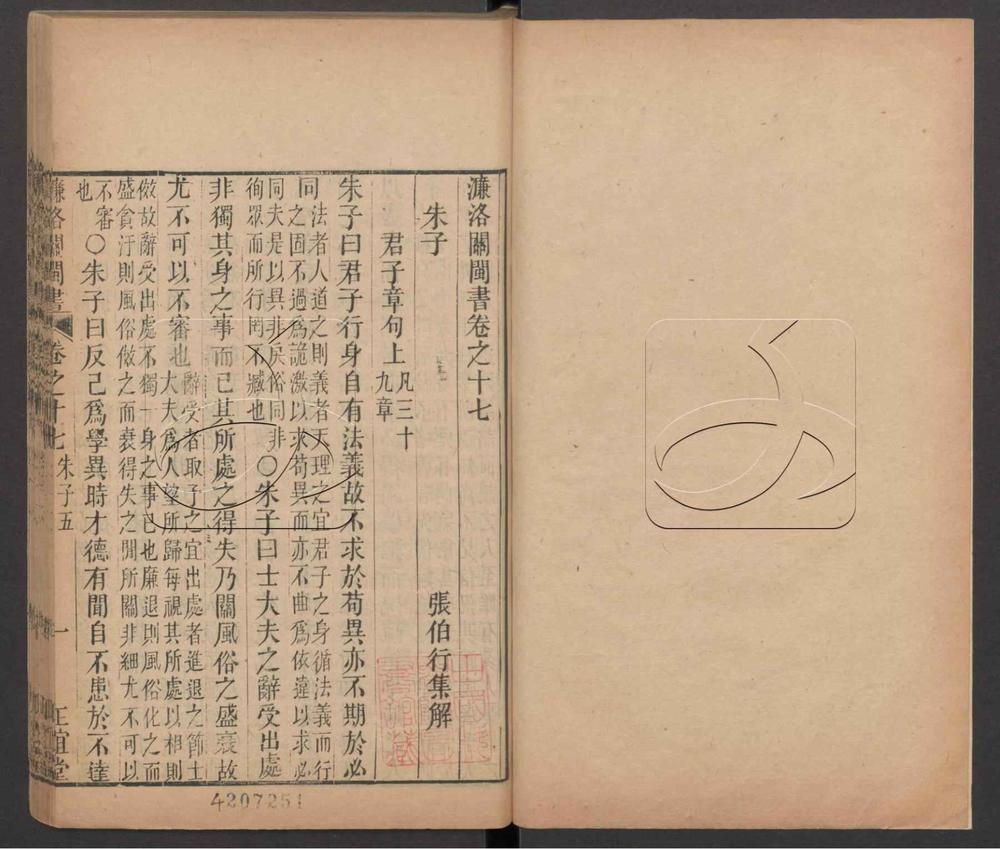 濂洛關閩書卷之十七
朱子
張伯行集解
君子章句上
凡三十
九章
朱子曰君子行身自有法義故不求於苟異亦不期於必
同
法者人道之則義者天理之宜君子之身循法義而行
之固不過爲詭激以求苟異而亦不曲爲依違以求必
同夫是以異非戾俗同非
徇眾而所行罔不臧也
○朱子曰士大夫之辭受出處
非獨其身之事而已其所處之得失乃關風俗之盛衰故
尤不可以不審也
辭受者取予之宜出處者進退之節士
大夫爲人望所歸每視其所處以相則
傚故辭受出處不獨一身之事已也廉退則風俗化之而
盛貪汙則風俗傚之而衰得失之閒所關非細尤不可以
不審
也
○朱子曰反己爲學異時才德有聞自不患於不達
濂洛關閩書
卷之十七
朱子五
一
正誼堂
4207251